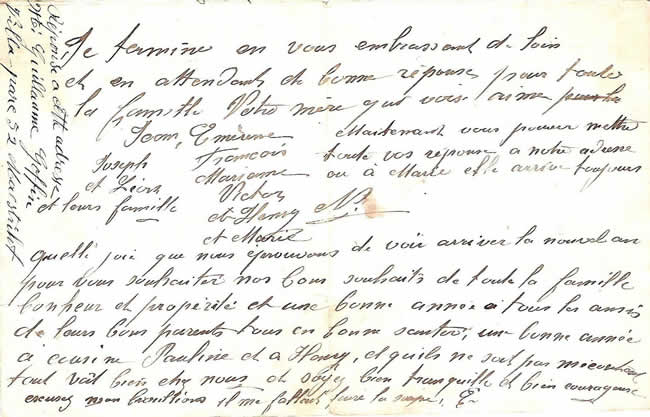 Réponse a cette adresse
Mr Guillaume Goffin
Villa parc 52 Maestricht
Je termine en vous embrassant de loin
et en attendant de bonne réponses pour toute
la famille Votre mère qui vous aime
Jean, Emérene Maintenant vous pouvez mettre
Joseph François toute vos réponse a notre adresse
et Marianne ou à Marie elle arrive toujours
et leurs famille Victor
et Henry
et Marie
quelle joie que nous éprouvons de voir arriver la nouvel an
pour vous souhaiter nos bons souhaits de toute la famille
bonheur et propérité et une bonne année a tous les amis
de leurs bons parents tous en bonne santée, une bonne année
à cousine Pauline et a Henry, et quils ne soit pas
tout vât bien chez nous et soyez bien tranquille et bien courageuse
excusez mon il me fallait faire la soupe,